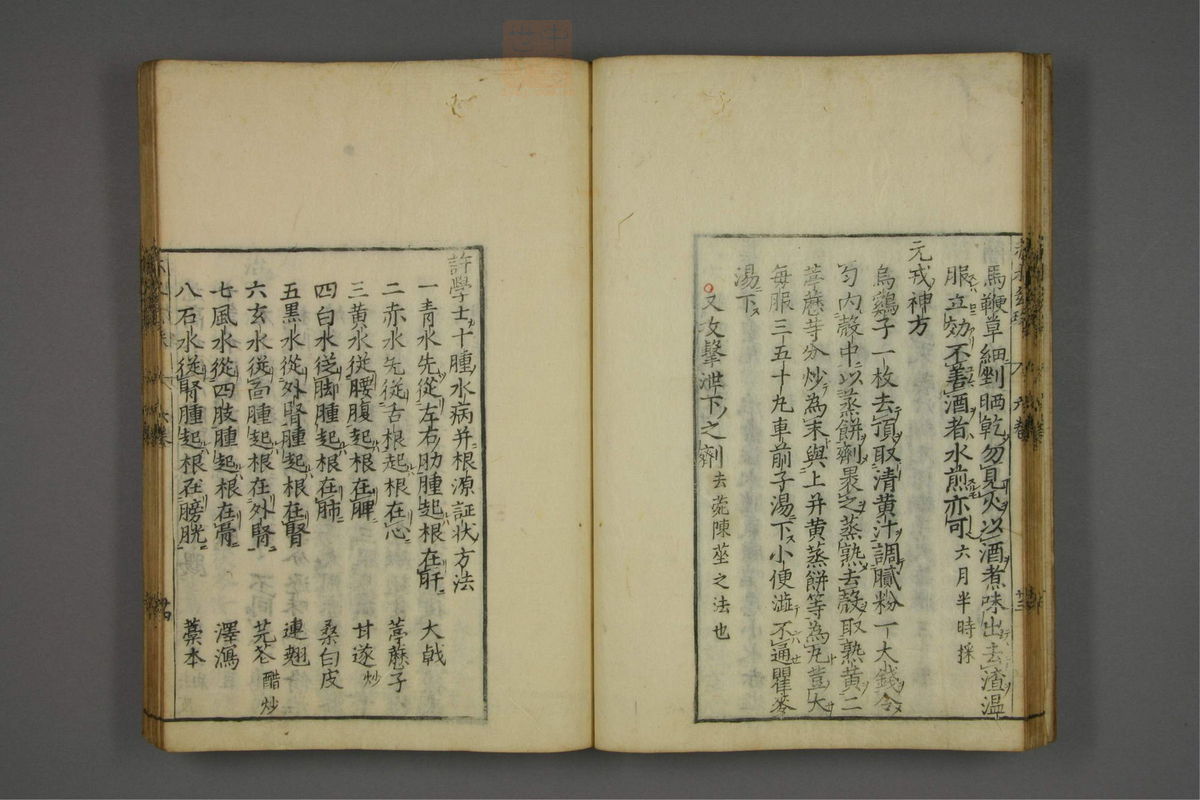 馬鞭草細剉晒乾勿見火以酒煮味出去渣温
服立効不善酒者水煎亦可六月半時採
元戎神方
烏鷄子一枚去頂取清黄汁調膩粉一大錢令
匀内殼中以蒸餅劑裹之蒸熟去殼取熟黄二
葶藶等分炒為末與上并黄蒸餅等為丸荳大
毎服三五十丸車前子湯下小便澁不通瞿麥
湯下
又攻擊泄下之劑去菀陳莝之法也
許學士十腫水病并根源証状方法
一青水先從左右肋腫起根在肝 大戟
二赤水先從舌根起根在心 葶藶子
三黄水従腰腹起根在脾 甘遂炒
四白水従脚腫起根在肺 桑白皮
五黒水從外腎腫起根在腎 連翹
六玄水従面腫起根在外腎 芫花醋炒
七風水從四肢腫起根在骨 澤瀉
八石水従腎腫起根在膀胱 藁本